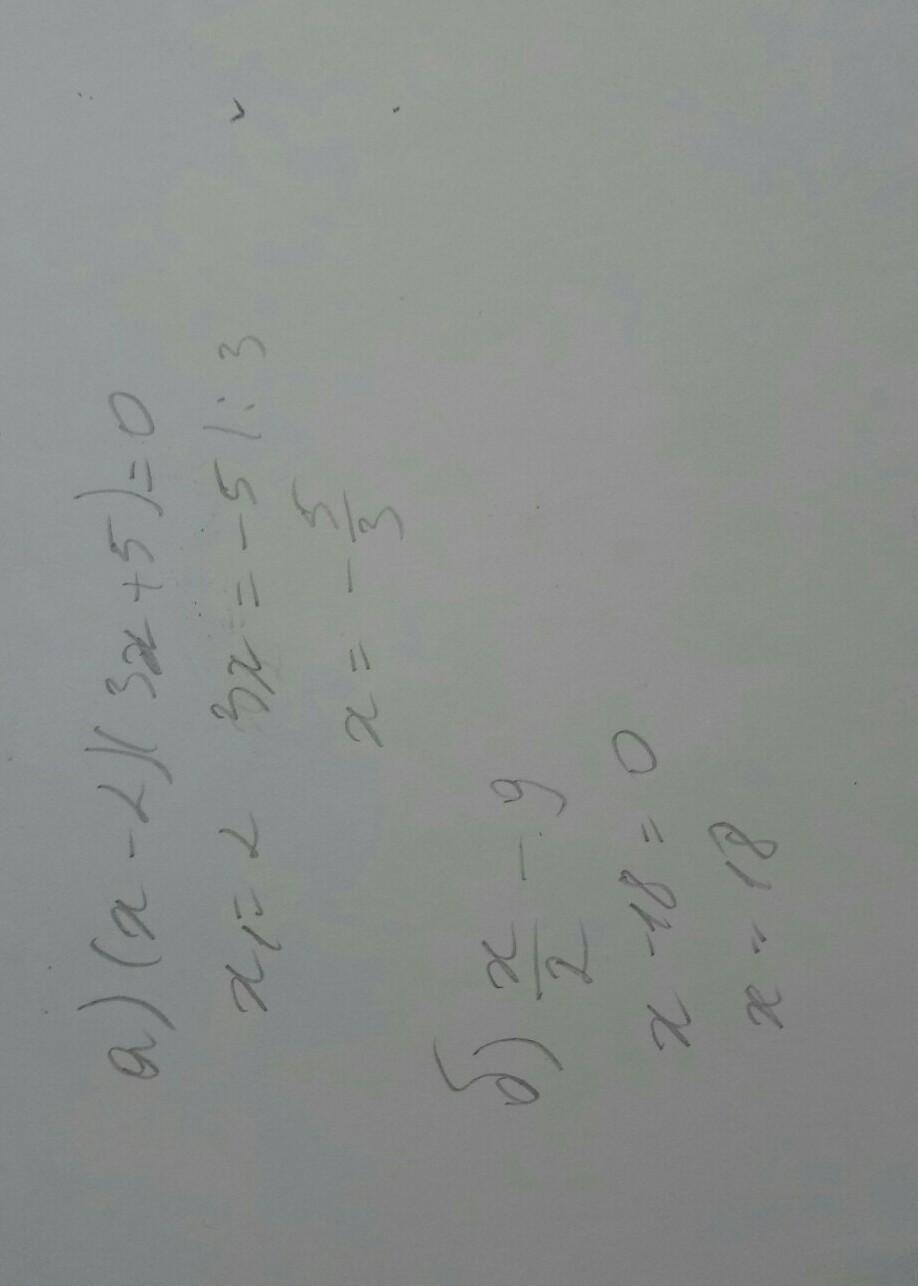 а) (x - 2)(3x + 5) = 0
x₁ = 2   3x = -5 | : 3
x = - 5/3
б) x/2 - 9
x - 18 = 0
x = 18